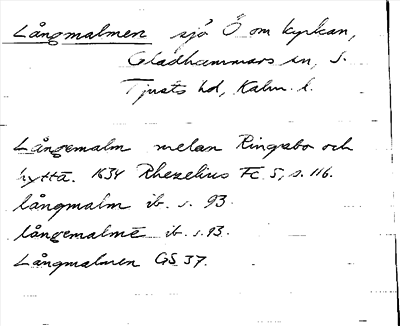 Långmalmen sjö Ö om kyrkan,
Gladhammars sn, S.
Tjusts hd, Kalm. l.
Långemalm melan Ringsbo och
hytta. 1634 Rhezelius Fc 5, s. 116.
långmalm ib. s. 93.
långemalmē ib. s. 93.
Långmalmen GS 37.